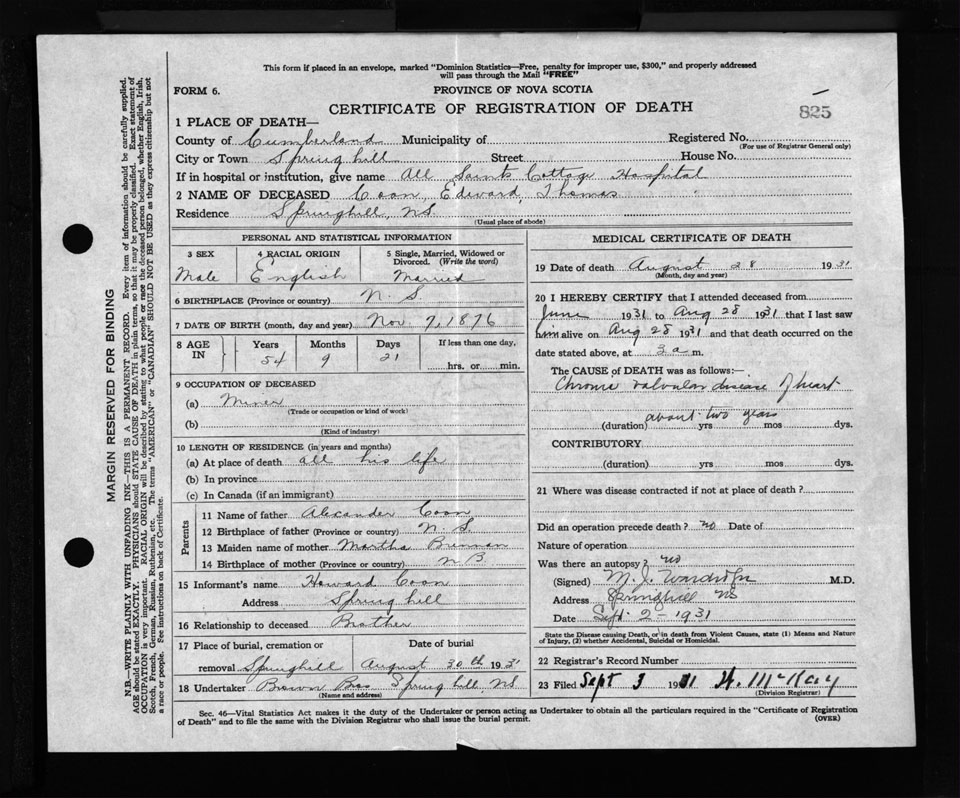 This form if placed in an envelope, marked "Dominion Statistics—Free, penalty for improper use, $300," and properly addressed
will pass through the Mail "FREE"
FORM 6.
PROVINCE OF NOVA SCOTIA
CERTIFICATE OF REGISTRATION OF DEATH
825
1 PLACE OF DEATH—
County of Cumberland Municipality of Registered No.
(For use of Registrar General only)
City or Town Springhill Street House No.
If in hospital or institution, give name All Saints Cottage Hospital
2 NAME OF DECEASED Coon, Edward, Thomas
Residence Springhill, N.S.
(Usual place of abode)
PERSONAL AND STATISTICAL INFORMATION
3 SEX
Male
4 RACIAL ORIGIN
English
5 Single, Married, Widowed or
Divorced. (Write the word)
Married
6 BIRTHPLACE (Province or country) N. S.
7 DATE OF BIRTH (month, day and year) Nov. 7, 1876
8 AGE IN
Years Months Days If less than one day,
54 9 21 hrs. or min.
9 OCCUPATION OF DECEASED
(a) Miner
(Trade or occupation or kind of work)
(b)
(Kind of industry)
10 LENGTH OF RESIDENCE (in years and months)
(a) At place of death all his life
(b) In province
(c) In Canada (if an immigrant)
Parents
11 Name of father Alexander Coon
12 Birthplace of father (Province or country) N. S.
13 Maiden name of mother Martha
14 Birthplace of mother (Province or country) N B
15 Informant's name Howard Coon
Address Springhill
16 Relationship to deceased Brother
17 Place of burial, cremation or Date of burial
removal Springhill August 30th 1931
18 Undertaker Brown Bros Springhill, NS
(Name and address)
MEDICAL CERTIFICATE OF DEATH
19 Date of death August 28 1931
(Month, day and year)
20 I HEREBY CERTIFY that I attended deceased from
June 1931 to Aug 28 1931 that I last saw
him alive on Aug 28 1931 and that death occurred on the
date stated above, at 3 a m.
The CAUSE of DEATH was as follows:—
Chronic valvular disease of heart
about two years
(duration) yrs mos dys.
CONTRIBUTORY
(duration) yrs mos dys.
21 Where was disease contracted if not at place of death?
Did an operation precede death? no Date of
Nature of operation
Was there an autopsy? no
(Signed) M. J. Wardrope M.D.
Address Springhill NS
Date Sept. 2 - 1931
State the Disease causing Death, or in death from Violent Causes, state (1) Means and Nature
of Injury, (2) whether Accidental, Suicidal or Homicidal.
22 Registrar's Record Number
23 Filed Sept 3 1931 H. McKay
(Division Registrar)
Sec. 46—Vital Statistics Act makes it the duty of the Undertaker or person acting as Undertaker to obtain all the particulars required in the "Certificate of Registration
of Death" and to file the same with the Division Registrar who shall issue the burial permit.
(OVER)
MARGIN RESERVED FOR BINDING
N.B.—WRITE PLAINLY WITH UNFADING INK—THIS IS A PERMANENT RECORD. Every item of information should be carefully supplied.
AGE should be stated EXACTLY. PHYSICIANS should STATE CAUSE OF DEATH in plain terms, so that it may be properly classified. Exact statement of
OCCUPATION is very important. RACIAL ORIGIN will be described by stating to what people or race the deceased person belonged, whether English, Irish,
Scotch, French, German, Russian, Ruthenian, etc. The terms "AMERICAN" or "CANADIAN" SHOULD NOT BE USED as they express citizenship but not
a race or people. See instructions on back of Certificate.